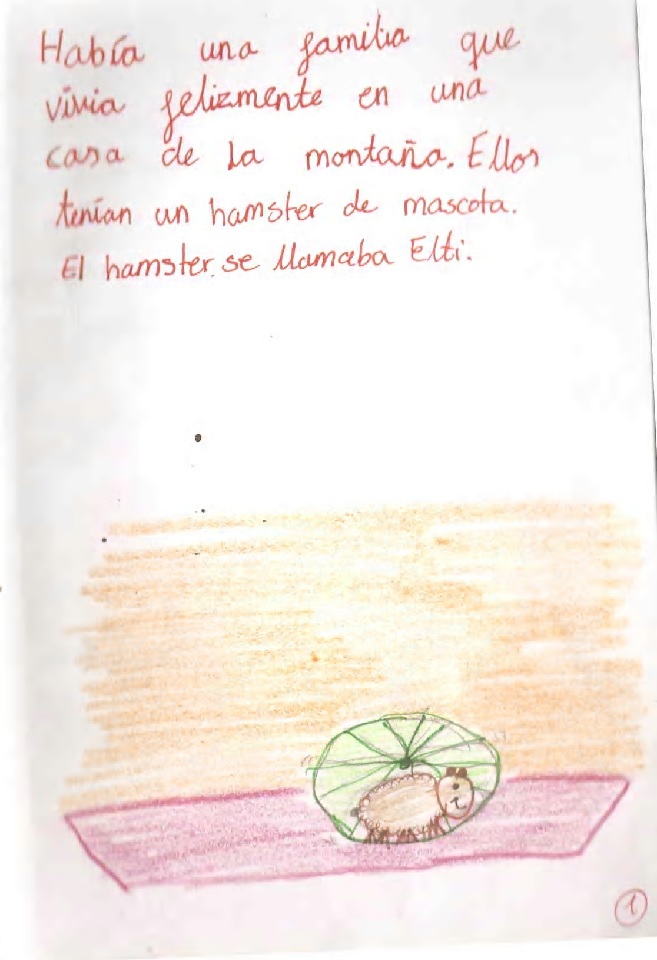 Había una familia que
vivia felizmente en una
casa de la montaña. Ellos
tenían un hamster de mascota.
El hamster se llamaba Elti.
1